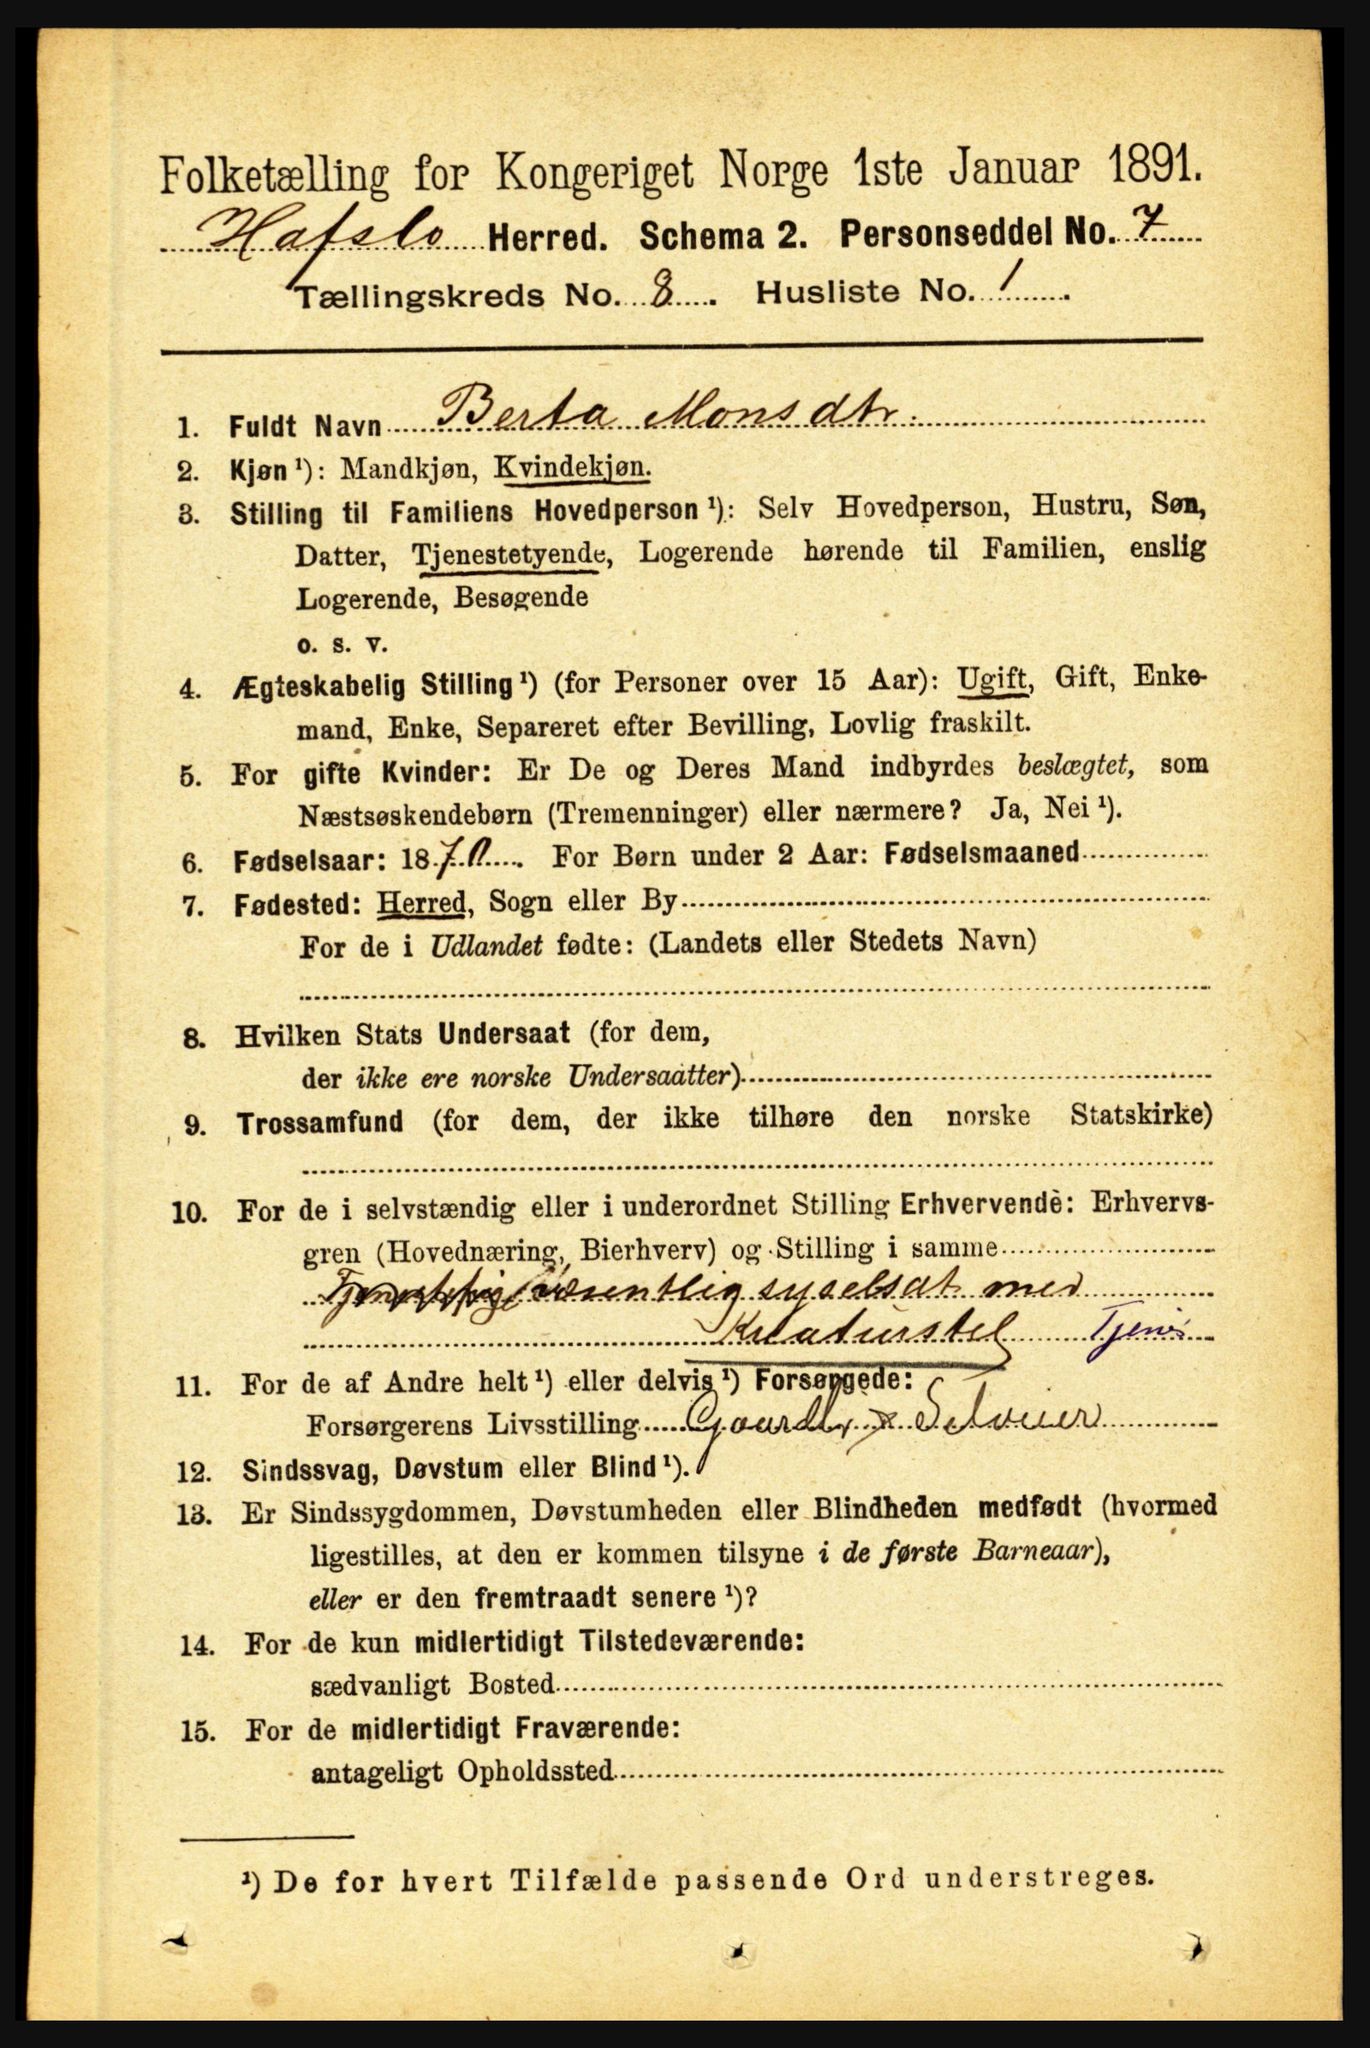 Folketælling for Kongeriget Norge 1ste Januar 1891.
Hafslo Herred. Schema 2. Personseddel No. 7
Tællingskreds No. 8. Husliste No. 1.
1. Fuldt Navn Berta Monsdtr.
2. Kjøn ¹): Mandkjøn, Kvindekjøn.
3. Stilling til Familiens Hovedperson ¹): Selv Hovedperson, Hustru, Søn,
Datter, Tjenestetyende, Logerende hørende til Familien, enslig
Logerende, Besøgende
o. s. v.
4. Ægteskabelig Stilling ¹) (for Personer over 15 Aar): Ugift, Gift, Enke-
mand, Enke, Separeret efter Bevilling, Lovlig fraskilt.
5. For gifte Kvinder: Er De og Deres Mand indbyrdes beslægtet, som
Næstsøskendebørn (Tremenninger) eller nærmere? Ja, Nei ¹).
6. Fødselsaar: 1870. For Børn under 2 Aar: Fødselsmaaned
7. Fødested: Herred, Sogn eller By
For de i Udlandet fødte: (Landets eller Stedets Navn)
8. Hvilken Stats Undersaat (for dem,
der ikke ere norske Undersaatter)
9. Trossamfund (for dem, der ikke tilhøre den norske Statskirke)
10. For de i selvstændig eller i underordnet Stilling Erhvervende: Erhvervs-
gren (Hovednæring, Bierhverv) og Stilling i samme
Tjenestepige væsentlig syselsat med
Kreaturstel Tjenes
11. For de af Andre helt ¹) eller delvis ¹) Forsørgede:
Forsørgerens Livsstilling Gaardbr. Selveier
12. Sindssvag, Døvstum eller Blind ¹).
13. Er Sindssygdommen, Døvstumheden eller Blindheden medfødt (hvormed
ligestilles, at den er kommen tilsyne i de første Barneaar),
eller er den fremtraadt senere ¹)?
14. For de kun midlertidigt Tilstedeværende:
sædvanligt Bosted
15. For de midlertidigt Fraværende:
antageligt Opholdssted
¹) De for hvert Tilfælde passende Ord understreges.